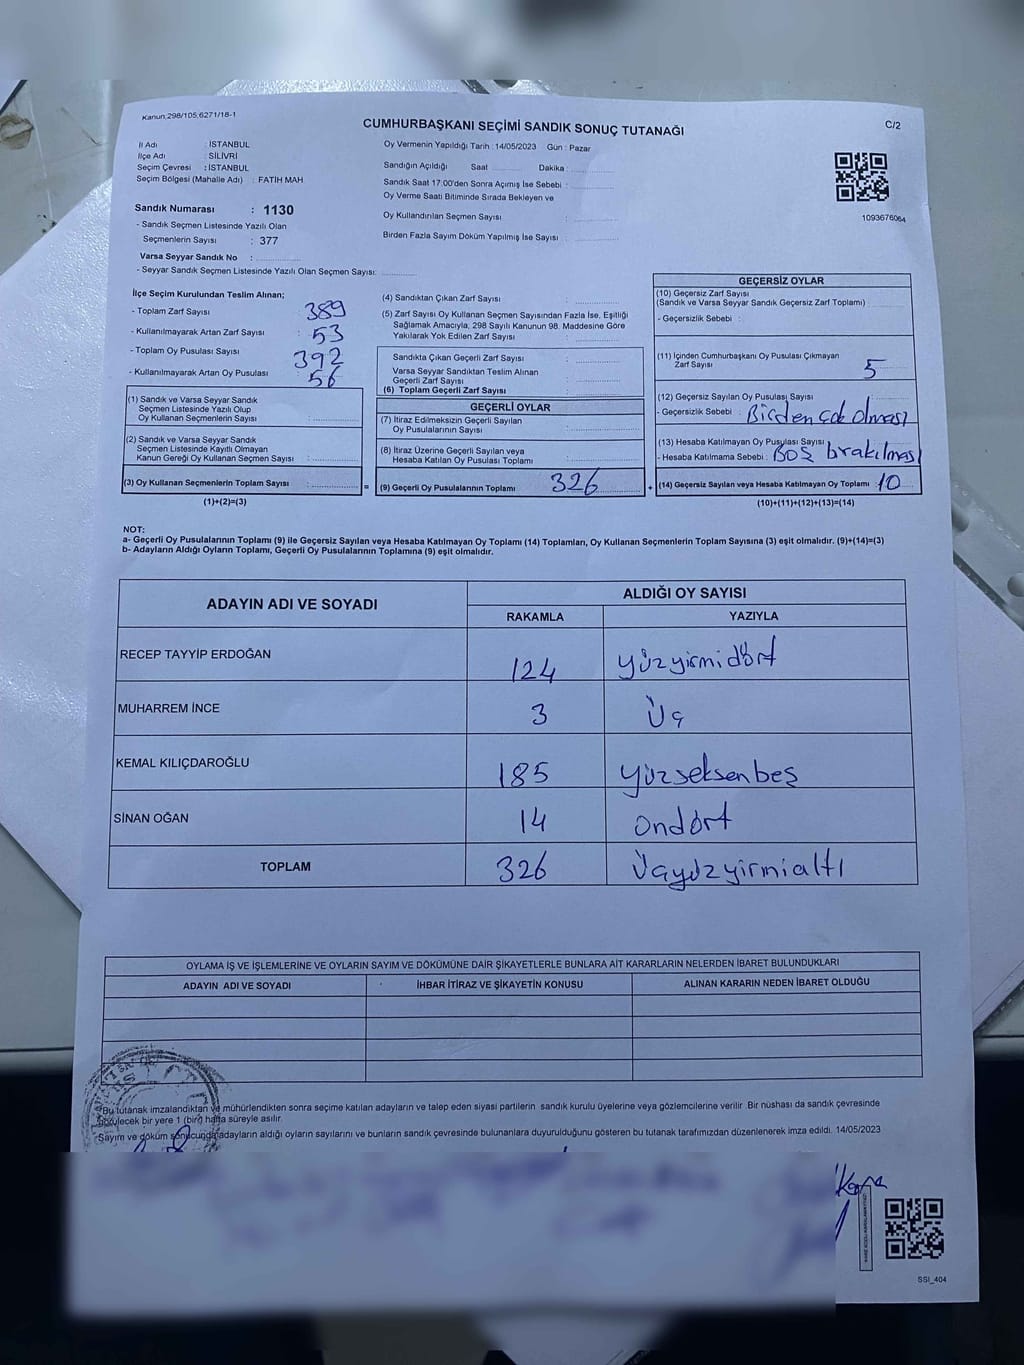 Kanun,298/105,6271/18-1
CUMHURBAŞKANI SEÇİMİ SANDIK SONUÇ TUTANAĞI
C/2
İl Adı : İSTANBUL
İlçe Adı : SİLİVRİ
Seçim Çevresi : İSTANBUL
Seçim Bölgesi (Mahalle Adı) : FATİH MAH
Sandık Numarası : 1130
- Sandık Seçmen Listesinde Yazılı Olan
Seçmenlerin Sayısı : 377
Varsa Seyyar Sandık No :
- Seyyar Sandık Seçmen Listesinde Yazılı Olan Seçmen Sayısı:
Oy Vermenin Yapıldığı Tarih : 14/05/2023 Gün : Pazar
Sandığın Açıldığı Saat Dakika :
Sandık Saat 17:00'den Sonra Açımış İse Sebebi :
Oy Verme Saati Bitiminde Sırada Bekleyen ve
Oy Kullandırılan Seçmen Sayısı :
Birden Fazla Sayım Döküm Yapılmış İse Sayısı :
1093676064
İlçe Seçim Kurulundan Teslim Alınan;
- Toplam Zarf Sayısı : 389
- Kullanılmayarak Artan Zarf Sayısı : 53
- Toplam Oy Pusulası Sayısı : 392
- Kullanılmayarak Artan Oy Pusulası : 56
(1) Sandık ve Varsa Seyyar Sandık
Seçmen Listesinde Yazılı Olup
Oy Kullanan Seçmenlerin Sayısı :
(2) Sandık ve Varsa Seyyar Sandık
Seçmen Listesinde Kayıtlı Olmayan
Kanun Gereği Oy Kullanan Seçmen Sayısı :
(3) Oy Kullanan Seçmenlerin Toplam Sayısı :
(1)+(2)=(3)
(4) Sandıktan Çıkan Zarf Sayısı :
(5) Zarf Sayısı Oy Kullanan Seçmen Sayısından Fazla İse, Eşitliği
Sağlamak Amacıyla, 298 Sayılı Kanunun 98. Maddesine Göre
Yakılarak Yok Edilen Zarf Sayısı :
Sandıkta Çıkan Geçerli Zarf Sayısı :
Varsa Seyyar Sandıktan Teslim Alınan
Geçerli Zarf Sayısı :
(6) Toplam Geçerli Zarf Sayısı
GEÇERLİ OYLAR
(7) İtiraz Edilmeksizin Geçerli Sayılan
Oy Pusulalarının Sayısı :
(8) İtiraz Üzerine Geçerli Sayılan veya
Hesaba Katılan Oy Pusulası Toplamı :
= (9) Geçerli Oy Pusulalarının Toplamı 326 +
GEÇERSİZ OYLAR
(10) Geçersiz Zarf Sayısı
(Sandık ve Varsa Seyyar Sandık Geçersiz Zarf Toplamı)
- Geçersizlik Sebebi :
(11) İçinden Cumhurbaşkanı Oy Pusulası Çıkmayan
Zarf Sayısı 5
(12) Geçersiz Sayılan Oy Pusulası Sayısı
- Geçersizlik Sebebi : Birden çok olması
(13) Hesaba Katılmayan Oy Pusulası Sayısı
- Hesaba Katılmama Sebebi : Boş brakılması
(14) Geçersiz Sayılan veya Hesaba Katılmayan Oy Toplamı : 10
(10)+(11)+(12)+(13)=(14)
NOT:
a- Geçerli Oy Pusulalarının Toplamı (9) ile Geçersiz Sayılan veya Hesaba Katılmayan Oy Toplamı (14) Toplamları, Oy Kullanan Seçmenlerin Toplam Sayısına (3) eşit olmalıdır. (9)+(14)=(3)
b- Adayların Aldığı Oyların Toplamı, Geçerli Oy Pusulalarının Toplamına (9) eşit olmalıdır.
ADAYIN ADI VE SOYADI
ALDIĞI OY SAYISI
RAKAMLA YAZIYLA
RECEP TAYYİP ERDOĞAN 124 yüzyirmidört
MUHARREM İNCE 3 Üç
KEMAL KILIÇDAROĞLU 185 yüzseksenbeş
SİNAN OĞAN 14 ondört
TOPLAM 326 Üçyüzyirmialtı
OYLAMA İŞ VE İŞLEMLERİNE VE OYLARIN SAYIM VE DÖKÜMÜNE DAİR ŞİKAYETLERLE BUNLARA AİT KARARLARIN NELERDEN İBARET BULUNDUKLARI
ADAYIN ADI VE SOYADI İHBAR İTİRAZ VE ŞİKAYETİN KONUSU ALINAN KARARIN NEDEN İBARET OLDUĞU
Bu tutanak imzalandıktan ve mühürlendikten sonra seçime katılan adayların ve talep eden siyasi partilerin sandık kurulu üyelerine veya gözlemcilerine verilir. Bir nüshası da sandık çevresinde
görülecek bir yere 1 (bir) hafta süreyle asılır.
Sayım ve döküm sonucunda adayların aldığı oyların sayılarını ve bunların sandık çevresinde bulunanlara duyurulduğunu gösteren bu tutanak tarafımızdan düzenlenerek imza edildi. 14/05/2023
SSI_404